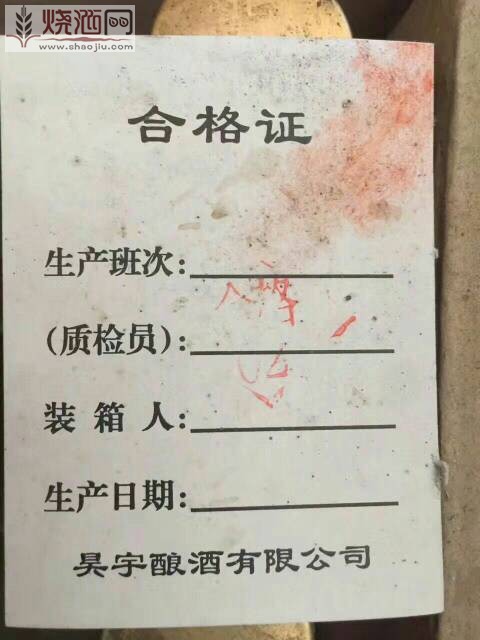 烧酒网
www.shaojiu.com
合格证
生产班次:
(质检员):
装 箱 人:
生产日期:
昊宇酿酒有限公司